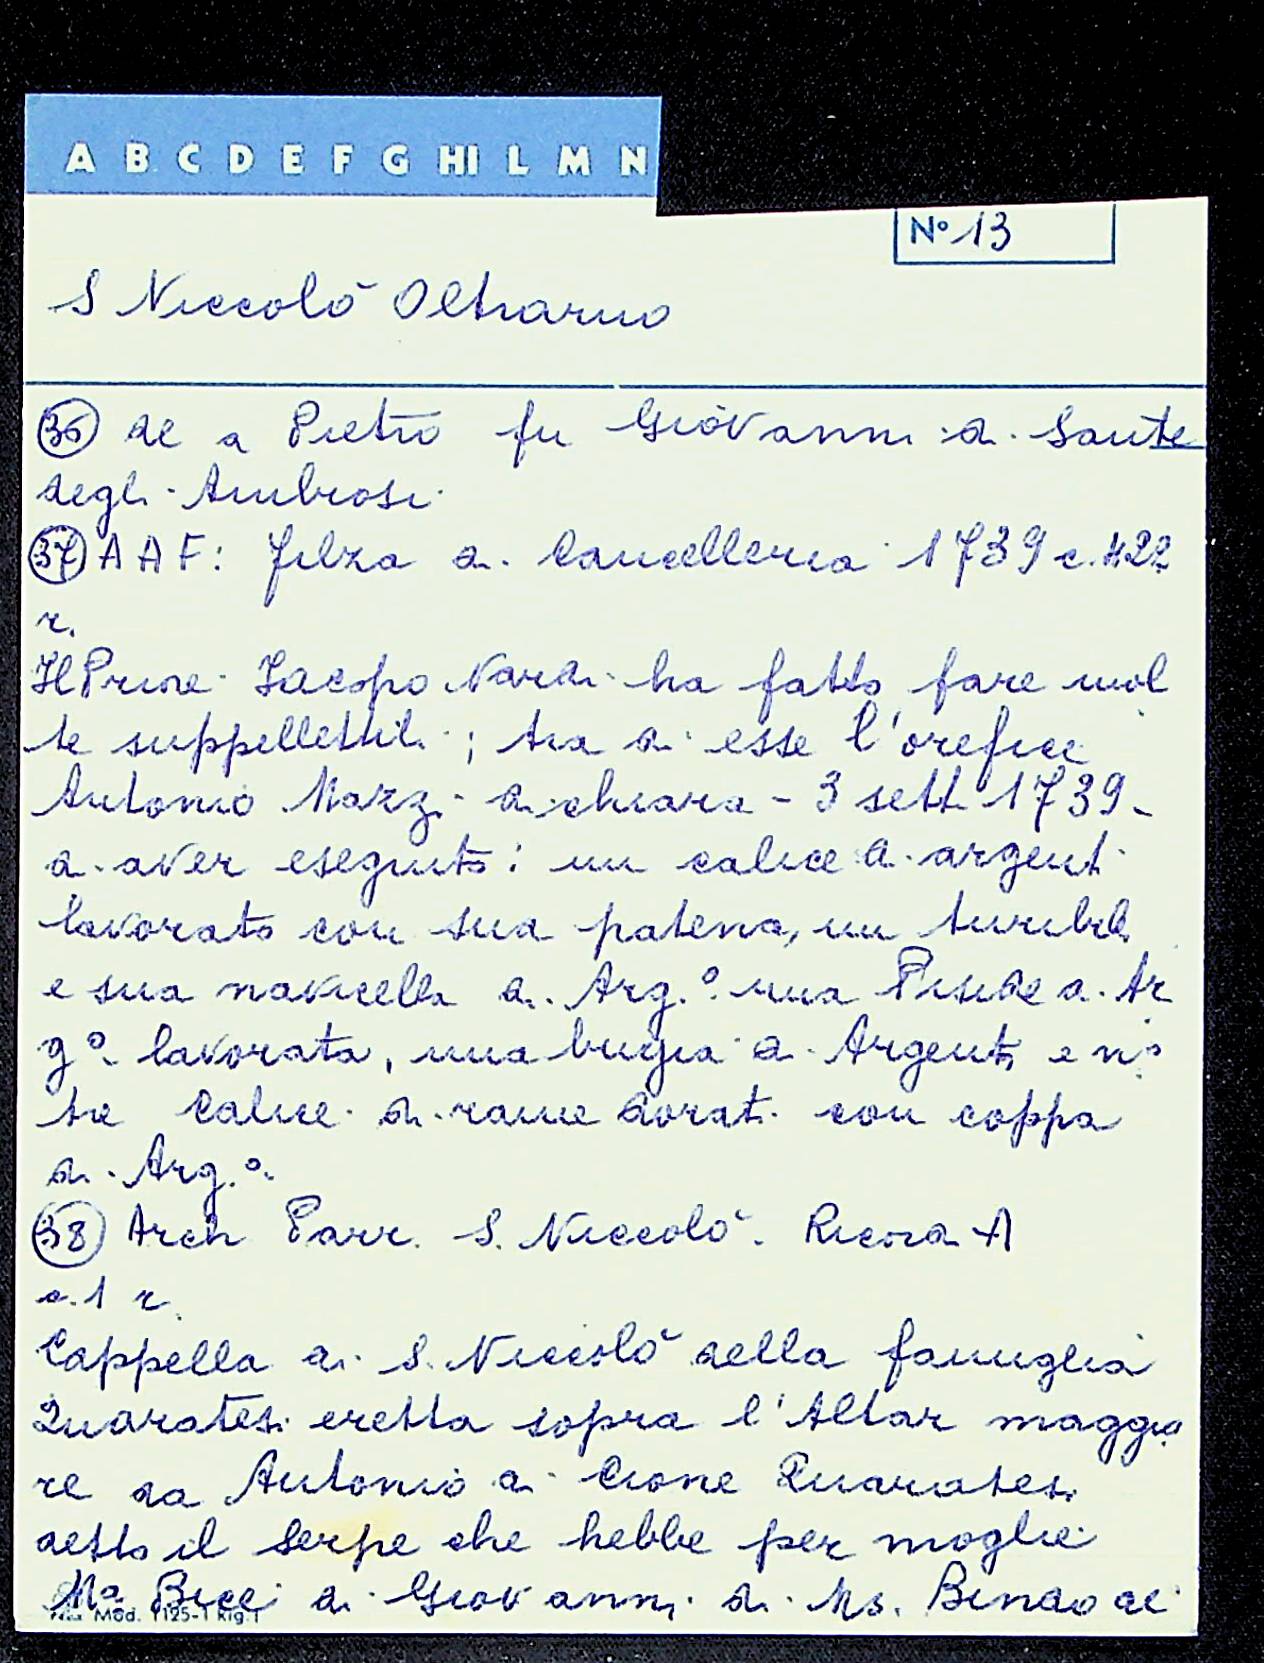 A B C D E F G HI L M N
N° 13
S Niccolò Oltrarno
36 de a Pietro fu Giovanni di Sante
degli Ambrosi
37 AAF: filza di Cancelleria 1739 c. 422
r.
Il Priore Iacopo Nardi ha fatto fare mol
te suppellettili; tra di esse l'orefice
Antonio Mazzi dichiara - 3 sett 1739 -
di aver eseguito: un calice di argento
lavorato con sua patena, un turibile
e sua navicella di Arg.° una Piside di Ar
g° lavorata, una bugia di Argento e n°
tre Calice di rame dorati con coppa
di Arg.°
38 Arch Parr. S. Niccolò. Ricordi A
c. 1 r.
Cappella di S. Niccolò della famiglia
Quaratesi eretta sopra l'Altar maggio
re da Antonio di Cione Quaratesi
detto il Serpe che hebbe per moglie
Mª Bice di Giovanni di Ms. Bindo de
Mod. 1125-1 Rig. 1